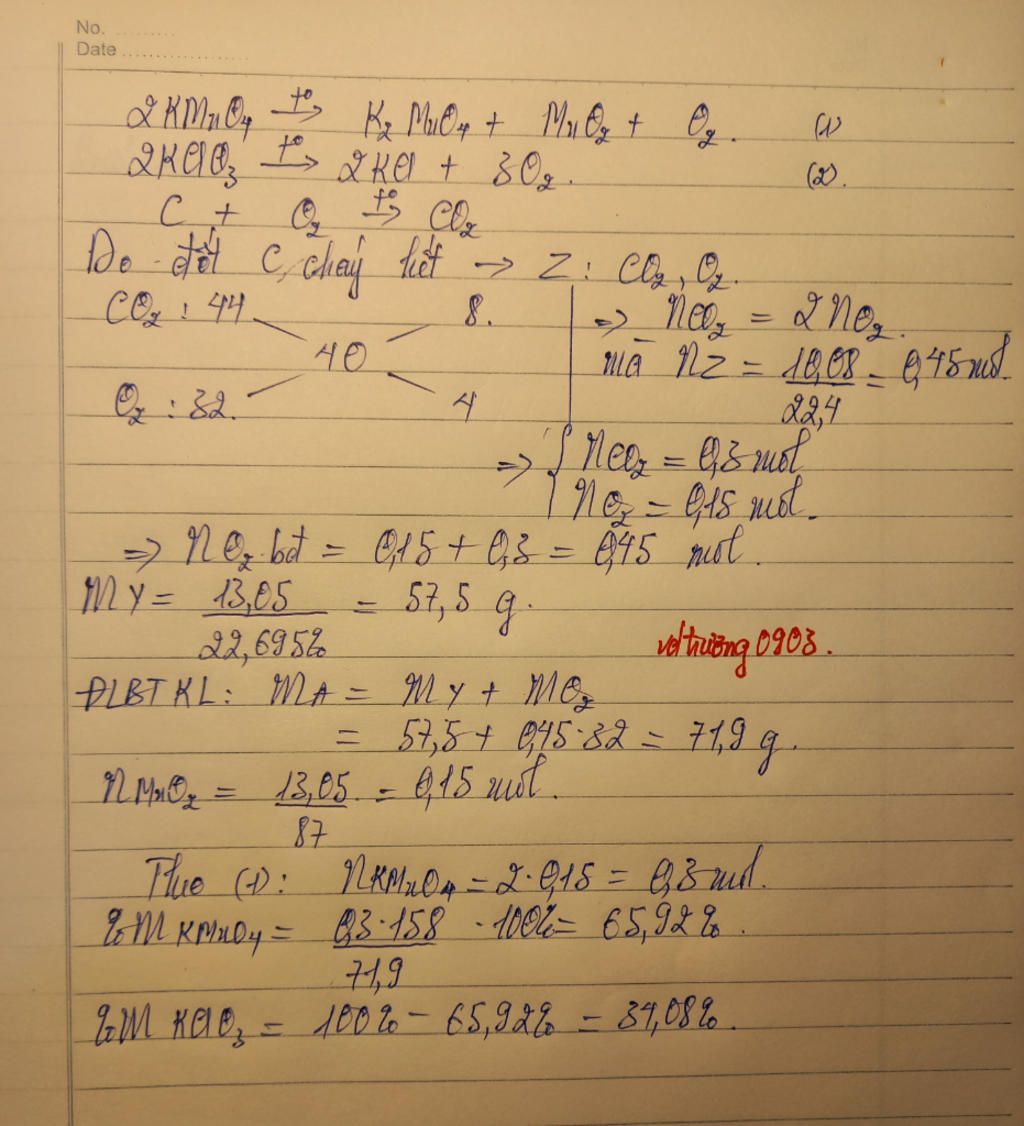 No. ............
Date ..................
2KMnO₄ —t°→ K₂MnO₄ + MnO₂ + O₂. (1)
2KClO₃ —t°→ 2KCl + 3O₂. (2).
C + O₂ —t°→ CO₂
Do đốt C, cháy hết → Z : CO₂, O₂.
CO₂ : 44 8. => nCO₂ = 2nO₂.
40 mà nZ = 10,08/22,4 = 0,45 mol.
O₂ : 32. 4
=> { nCO₂ = 0,3 mol
nO₂ = 0,15 mol.
=> nO₂ bđ = 0,15 + 0,3 = 0,45 mol.
mY = 13,05/22,695% = 57,5 g.
vdtrường0903.
ĐLBTKL: mA = mY + mO₂
= 57,5 + 0,45·32 = 71,9 g.
nMnO₂ = 13,05/87 = 0,15 mol.
Theo (1): nKMnO₄ = 2·0,15 = 0,3 mol.
%mKMnO₄ = 0,3·158/71,9 ·100% = 65,92%.
%mKClO₃ = 100% - 65,92% = 34,08%.